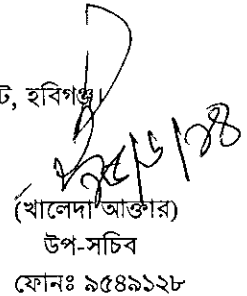 ট, হবিগঞ্জ।
(খালেদা আক্তার)
উপ-সচিব
ফোনঃ ৯৫৪৯১২৮